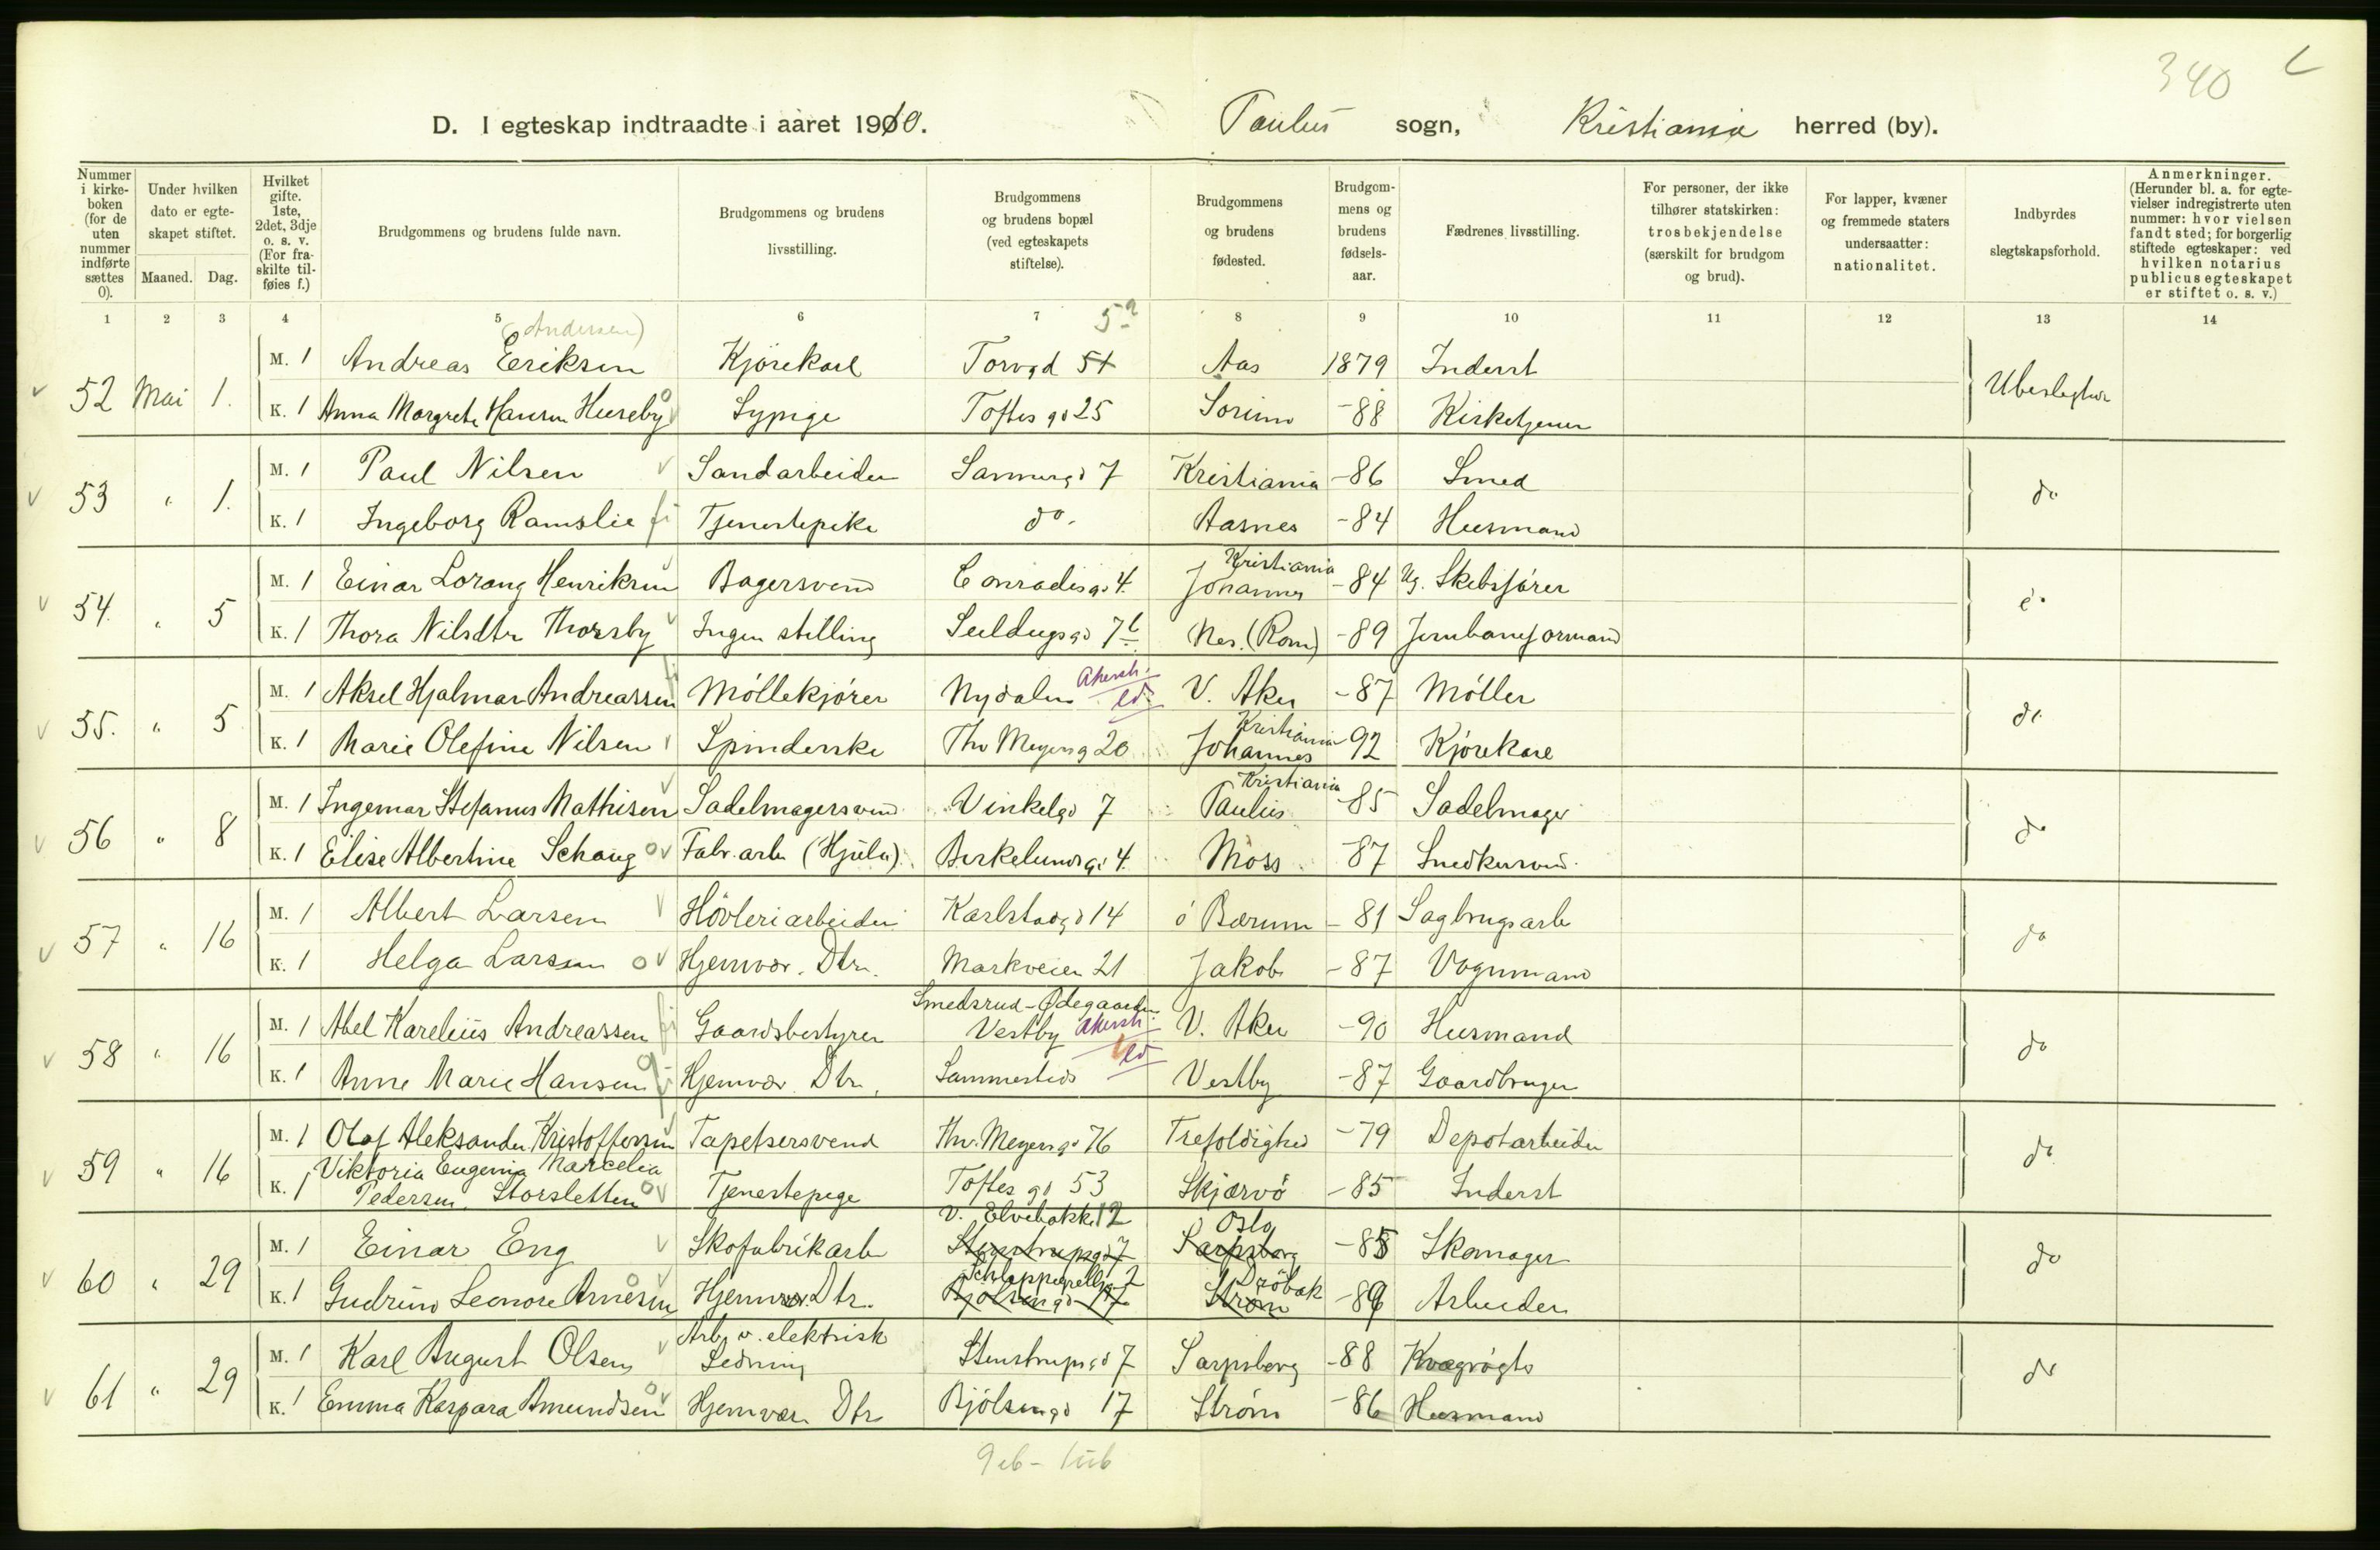 340
D. I egteskap indtraadte i aaret 1910. Paulus sogn, Kristiania herred (by).
Nummer i kirke-boken (for de uten nummer indførte sættes 0).
Under hvilken dato er egte-skapet stiftet.
Maaned. Dag.
Hvilket gifte. 1ste, 2det, 3dje o. s. v. (For fra-skilte til-føies f.)
Brudgommens og brudens fulde navn.
Brudgommens og brudens livsstilling.
Brudgommens og brudens bopæl (ved egteskapets stiftelse).
Brudgommens og brudens fødested.
Brudgom-mens og brudens fødsels-aar.
Fædrenes livsstilling.
For personer, der ikke tilhører statskirken: trosbekjendelse (særskilt for brudgom og brud).
For lapper, kvæner og fremmede staters undersaatter: nationalitet.
Indbyrdes slegtskapsforhold.
Anmerkninger. (Herunder bl. a. for egte-vielser indregistrerte uten nummer: hvor vielsen fandt sted; for borgerlig stiftede egteskaper: ved hvilken notarius publicus egteskapet er stiftet o. s. v.)
1 2 3 4 5 6 7 8 9 10 11 12 13 14
(Andersen)
52 Mai 1. M. 1 Andreas Eriksen Kjørekarl Torvgd 51 Aas 1879 Inderst
K. 1 Anna Margrete Hansen Huseby Sypige Toftes gd 25 Sørum -88 Kirketjener Ubeslegtet
53 " 1. M. 1 Paul Nilsen Sandarbeider Sannergd 7 Kristiania -86 Smed do
K. 1 Ingeborg Ramslie Tjenestepike do. Aasnes -84 Husmand
54. " 5 M. 1 Einar Lorang Henriksen Bagersvend Conradisgd 4. Kristiania Johannes -84 Ug. Skibsfører do
K. 1 Thora Nilsdtr Thorsby Ingen stilling Seildugsgd 7b Nes. (Rom) -89 Jernbaneformand
55. " 5 M. 1 Aksel Hjalmar Andreassen Møllekjører Nydalen Akersh. V. Aker -87 Møller do
K. 1 Marie Olefine Nilsen Spinderske Thv Meyersg 20 Kristiania Johannes 92 Kjørekarl
56 " 8 M. 1 Ingemar Stefanus Mathisen Sadelmagersvend Vinkelgd 7 Kristiania Paulus -85 Sadelmager do
K. 1 Elise Albertine Schaug Fabr. arb (Hjula). Birkelundsgd 4. Moss -87 Snedkersvend.
57 " 16 M. 1 Albert Larsen Høvleriarbeider Karlstadgd 14 ø Bærum -81 Sagbrugsarb do
K. 1 Helga Larsen Hjemvær. Dtr. Markveien 21 Jakob -87 Vognmand
58 " 16 M. 1 Abel Karelius Andreassen Gaardsbestyrer Smedsrud-Ødegaarden Vestby Akersh. V. Aker -90 Husmand do
K. 1 Anne Marie Hansen Hjemvær. Dtr. Sammesteds Vestby -87 Gaardbruger
59 " 16 M. 1 Olaf Aleksander Kristoffersen Tapetsersvend Thv. Meyersgd 76 Trefoldighed -79 Depotarbeider do
K. 1 Viktoria Eugenia Marcelia
Pedersen Storsletten Tjenestepige Toftes gd 53 Skjærvø -85 Inderst
60 " 29 M. 1 Einar Eng Skofabrikarb V. Elvebakke 12 Stenstrupsgd 7 Oslo Sarpsborg -85 Skomager do
K. 1 Gudrun Leonore Arnesen Hjemvær. Dtr. Bjølsengd 17 Drøbak Strøm -89 Arbeider
61 " 29 M. 1 Karl August Olsen Arb. v. elektrisk Ledning Stenstrupsgd 7 Sarpsborg -88 Kvægrøgter do
K. 1 Emma Kaspara Amundsen Hjemvær. Dtr Bjølsengd 17 Strøm -86 Husmand